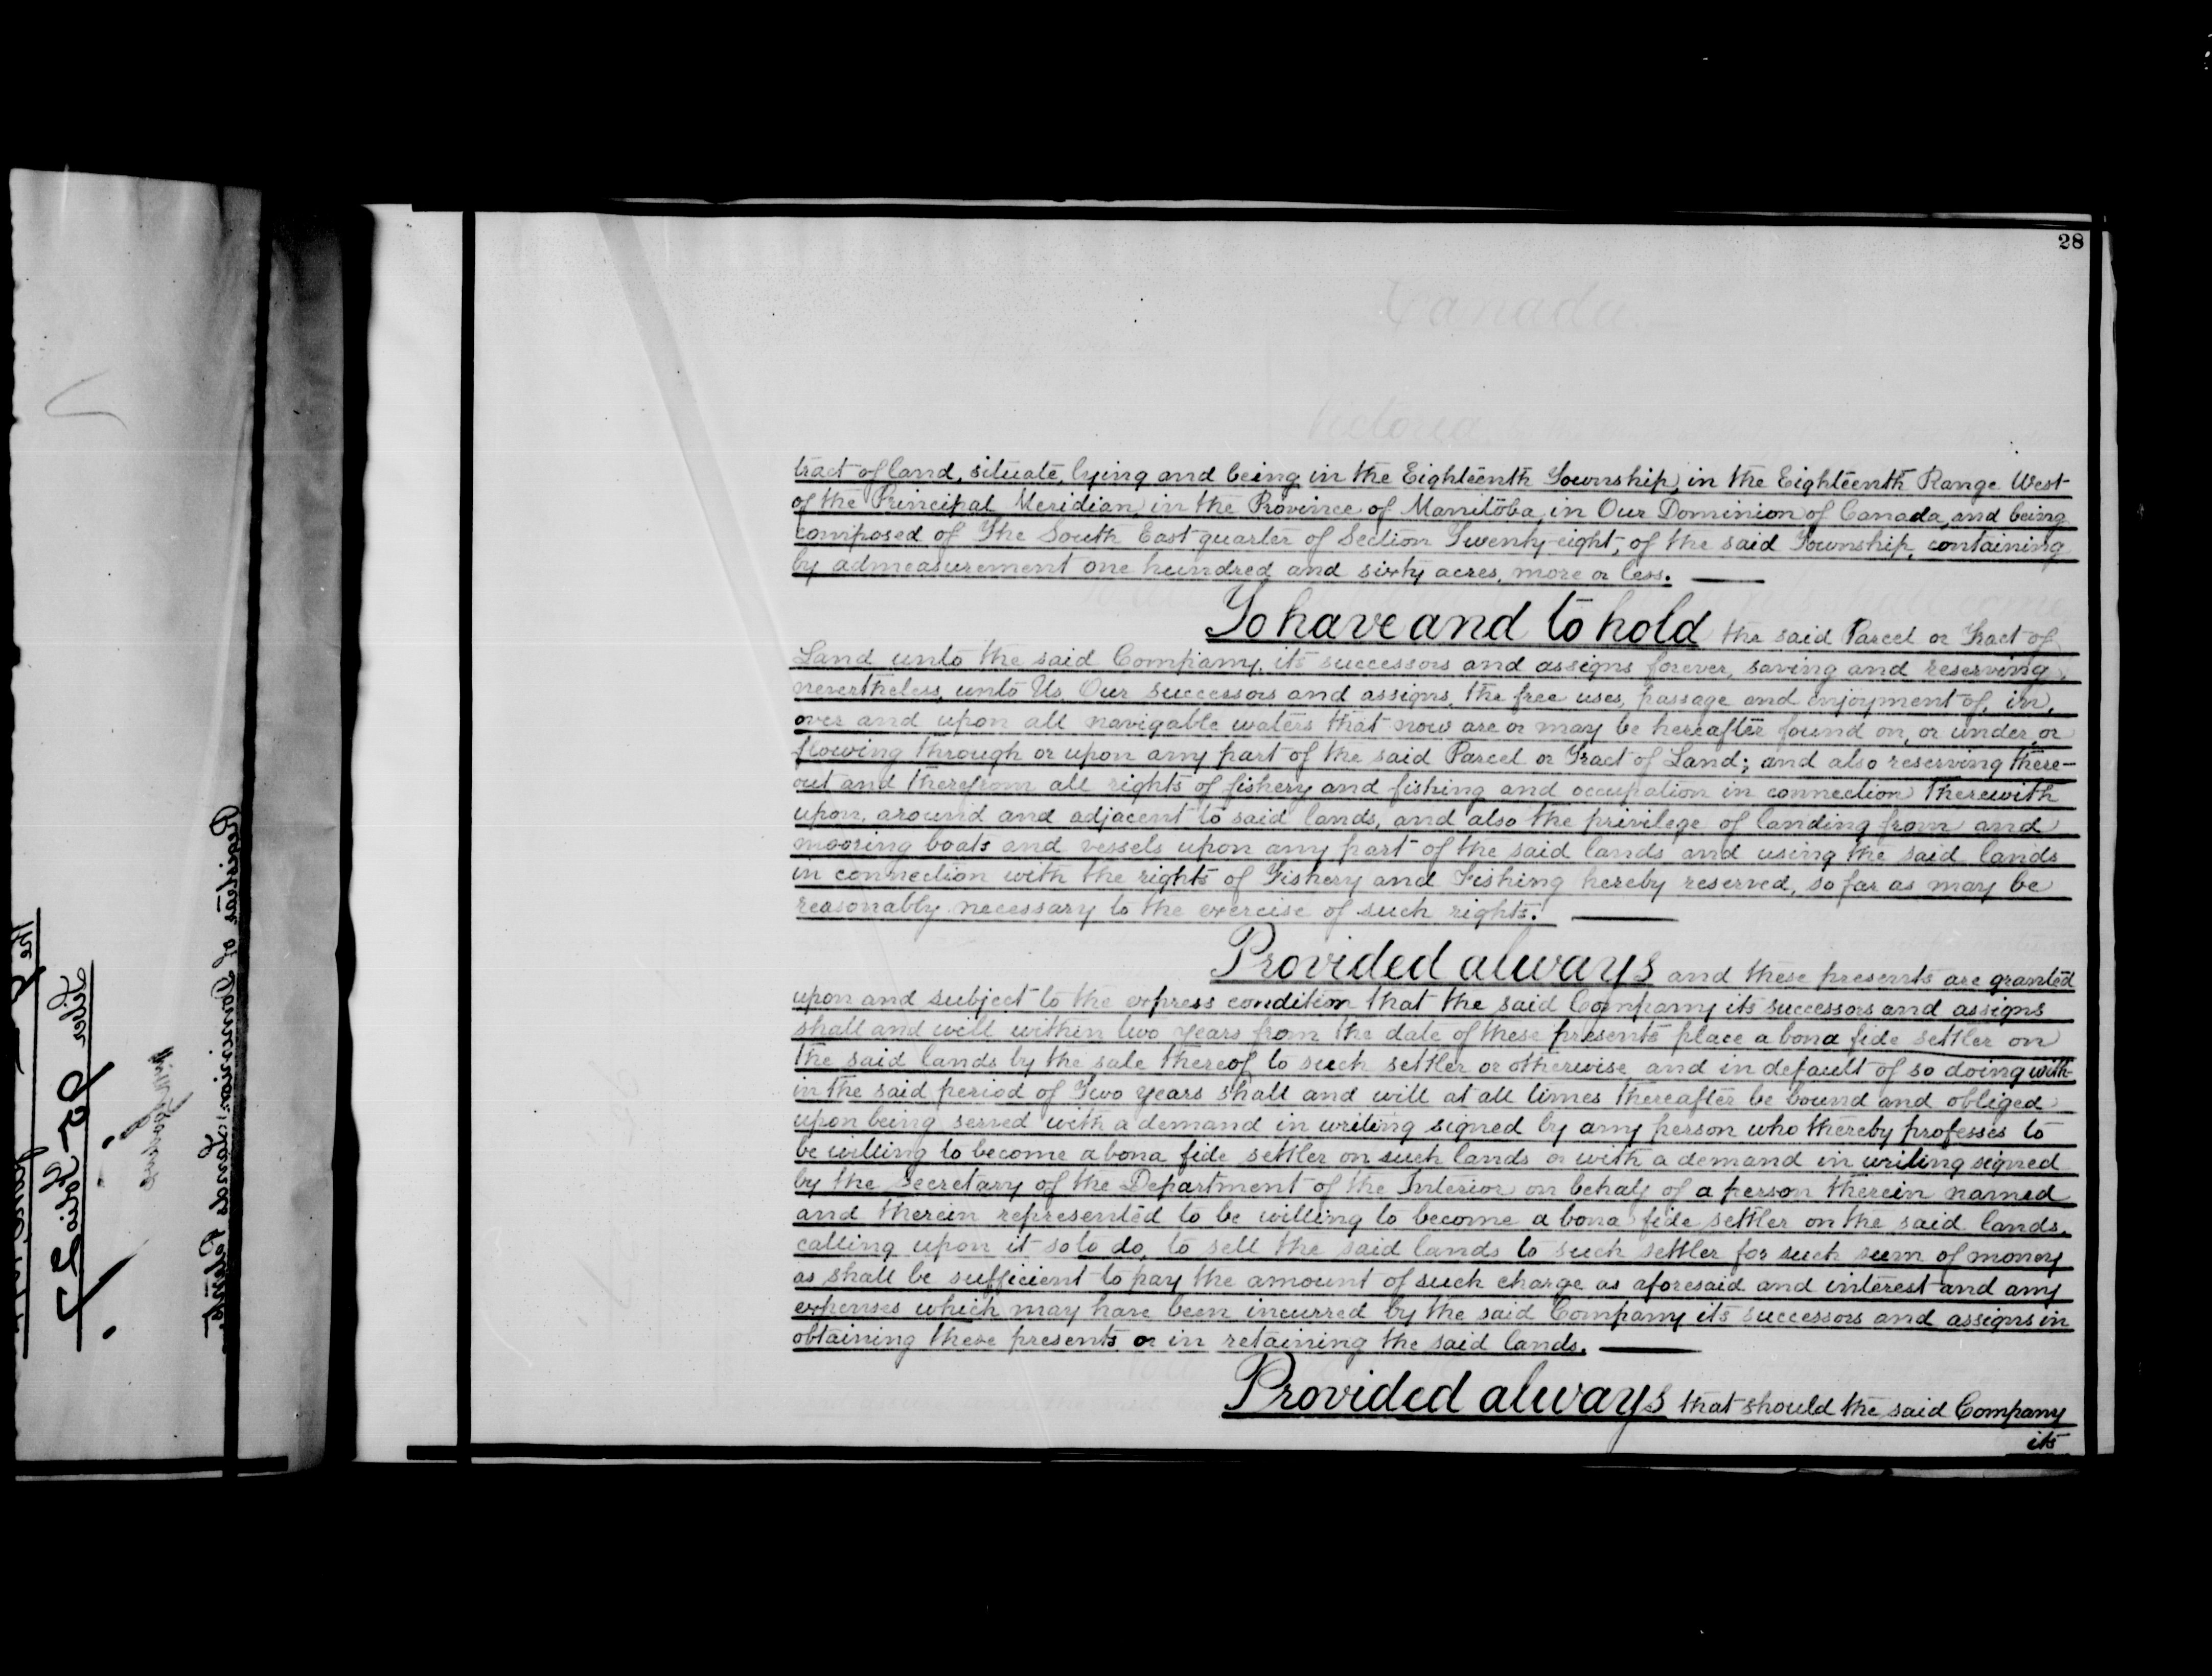 28
tract of land, situate, lying and being in the Eighteenth Township, in the Eighteenth Range West
of the Principal Meridian, in the Province of Manitoba, in Our Dominion of Canada, and being
composed of The South East quarter of Section Twenty-eight, of the said Township, containing
by admeasurement one hundred and sixty acres, more or less.
To have and to hold the said Parcel or Tract of
Land unto the said Company, its successors and assigns forever, saving and reserving
nevertheless, unto Us, Our successors and assigns, the free uses, passage and enjoyment of, in,
over and upon all navigable waters that now are or may be hereafter found on, or under, or
flowing through or upon any part of the said Parcel or Tract of Land; and also reserving there-
out and therefrom all rights of fishery and fishing and occupation in connection therewith
upon, around and adjacent to said lands, and also the privilege of landing from and
mooring boats and vessels upon any part of the said lands and using the said lands
in connection with the rights of Fishery and Fishing hereby reserved, so far as may be
reasonably necessary to the exercise of such rights.
Provided always and these presents are granted
upon and subject to the express condition that the said Company its successors and assigns
shall and will within two years from the date of these presents place a bona fide settler on
the said lands by the sale thereof to such settler or otherwise and in default of so doing with-
in the said period of Two years shall and will at all times thereafter be bound and obliged
upon being served with a demand in writing signed by any person who thereby professes to
be willing to become a bona fide settler on such lands or with a demand in writing signed
by the Secretary of the Department of the Interior on behalf of a person therein named
and therein represented to be willing to become a bona fide settler on the said lands,
calling upon it so to do, to sell the said lands to such settler for such sum of money
as shall be sufficient to pay the amount of such charge as aforesaid and interest and any
expenses which may have been incurred by the said Company its successors and assigns in
obtaining these presents or in retaining the said lands.
Provided always that should the said Company
its
Registrar of Dominion Lands Patents.
Liber 95 Folio 27